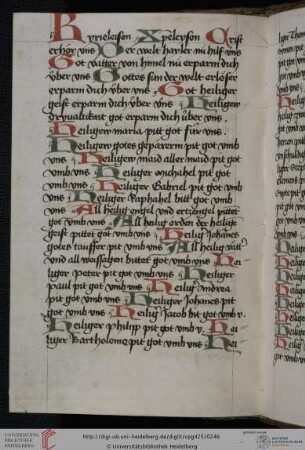 Kyrieleison Xpeleyson Crist
erhör vns Der welt hayler nü hilf vns
Got vatter von himel nü erparm dich
vber vns Gottes sun der welt erlöser
erparm dich über vns Got heiliger
geist erparm dich über vns Heiligew
dryualtikeit got erparm dich über vns.
Heiligew maria pitt got für vns.
Heiligew gotes gepererin pit got vmb
vns Heiligew maid aller maid pit got
vmb vns Heiliger michahel pit got
vmb vns Heiliger Gabriel pit got vmb
vns Heiliger Raphahel bitt got vmb
vns All heilig engel vnd ertzengel pittet
got vmb vns All heilig orden der heilige
geist pittet got vmb vns Heilig Johanes
gotes tauffer pit vmb vns All heilig vätt
vnd all weissagen bittet got vmb vns Hei
liger Peter pit got vmb vns Heiliger
paul pit got vmb vns Heilig Andrea
pit got vmb vns Heiliger Johanes pit
got vmb vns Heilig Jacob bit got vmb v.
Heiliger philipp pit got vmb v. Hei
liger Bartholome pit got vmb vns Hei
http://digi.ub.uni-heidelberg.de/diglit/cpg425/0246
© Universitätsbibliothek Heidelberg
UNIVERSITÄTS-
BIBLIOTHEK
HEIDELBERG